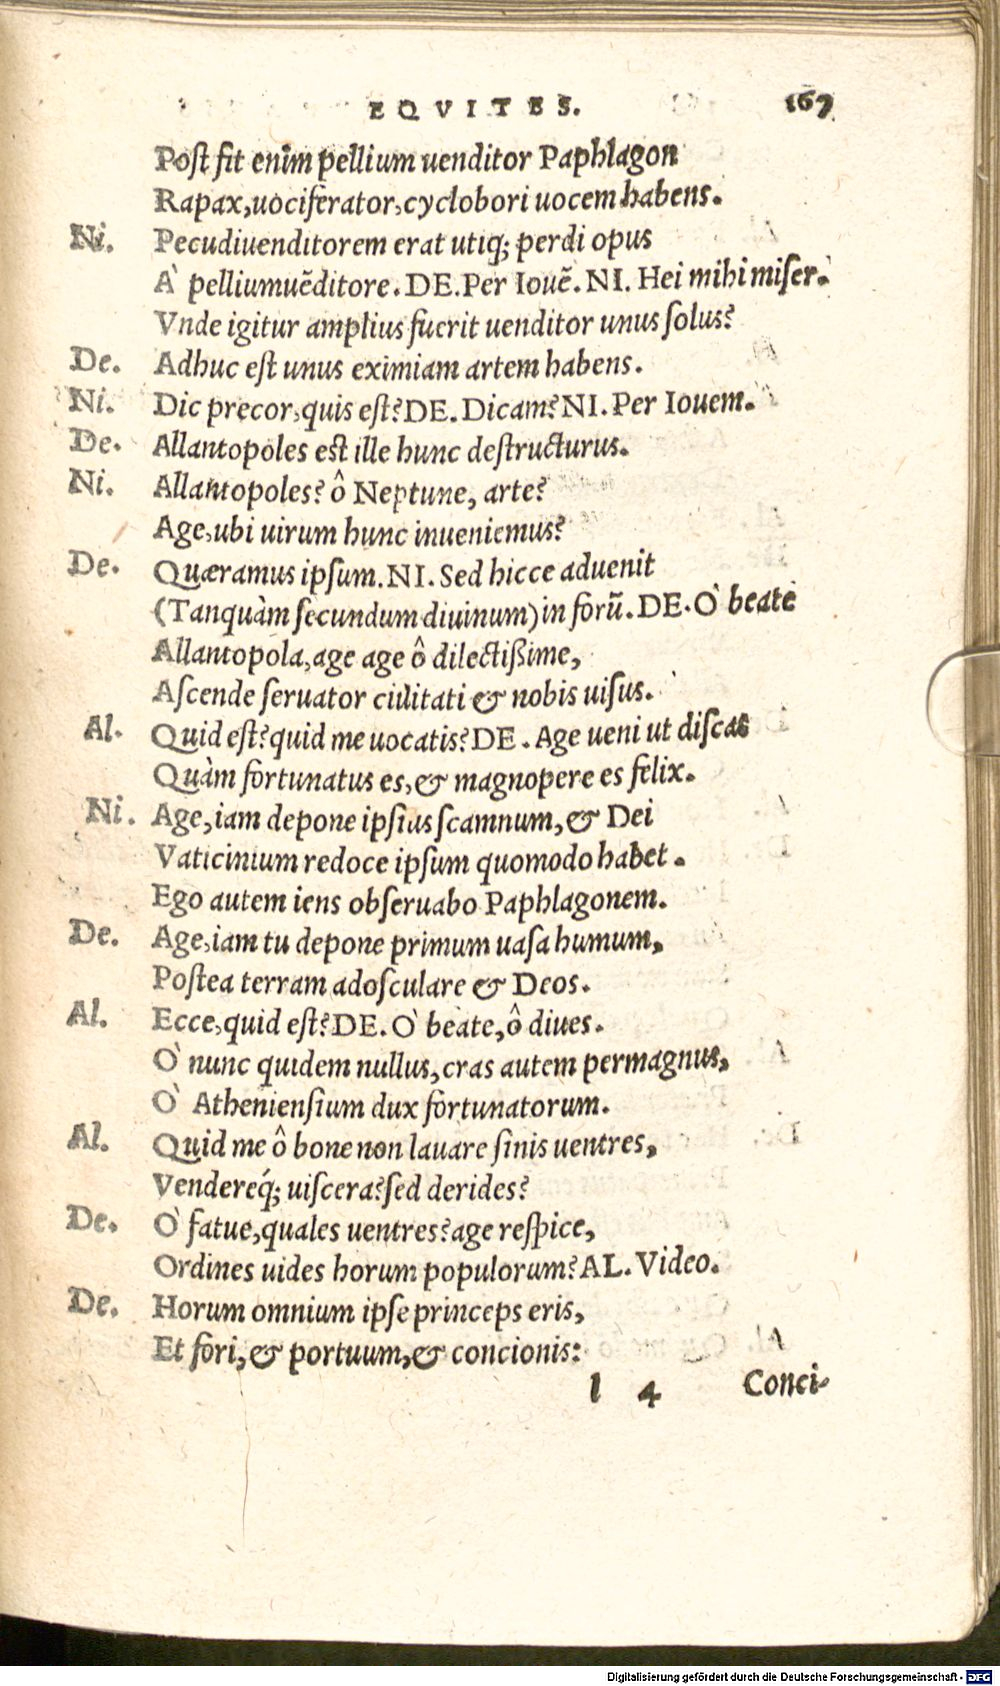 EQVITES. 167
Post fit enim pellium uenditor Paphlagon
Rapax, uociferator, cyclobori uocem habens.
Ni. Pecudiuenditorem erat utiq; perdi opus
A' pelliumuẽditore. DE. Per Iouẽ. NI. Hei mihi miser.
Vnde igitur amplius fuerit uenditor unus solus?
De. Adhuc est unus eximiam artem habens.
Ni. Dic precor, quis est? DE. Dicam? NI. Per Iouem.
De. Allantopoles est ille hunc destructurus.
Ni. Allantopoles? ô Neptune, arte?
Age, ubi uirum hunc inueniemus?
De. Quæramus ipsum. NI. Sed hicce aduenit
(Tanquàm secundum diuinum) in forũ. DE. O' beate
Allantopola, age age ô dilectißime,
Ascende seruator ciuitati & nobis uisus.
Al. Quid est? quid me uocatis? DE. Age ueni ut discas
Quàm fortunatus es, & magnopere es felix.
Ni. Age, iam depone ipsius scamnum, & Dei
Vaticinium redoce ipsum quomodo habet.
Ego autem iens obseruabo Paphlagonem.
De. Age, iam tu depone primum uasa humum,
Postea terram adosculare & Deos.
Al. Ecce, quid est? DE. O' beate, ô diues.
O' nunc quidem nullus, cras autem permagnus,
O' Atheniensium dux fortunatorum.
Al. Quid me ô bone non lauare sinis uentres,
Vendereq́; uiscera? sed derides?
De. O' fatue, quales uentres? age respice,
Ordines uides horum populorum? AL. Video.
De. Horum omnium ipse princeps eris,
Et fori, & portuum, & concionis:
l 4 Conci-
Digitalisierung gefördert durch die Deutsche Forschungsgemeinschaft - DFG